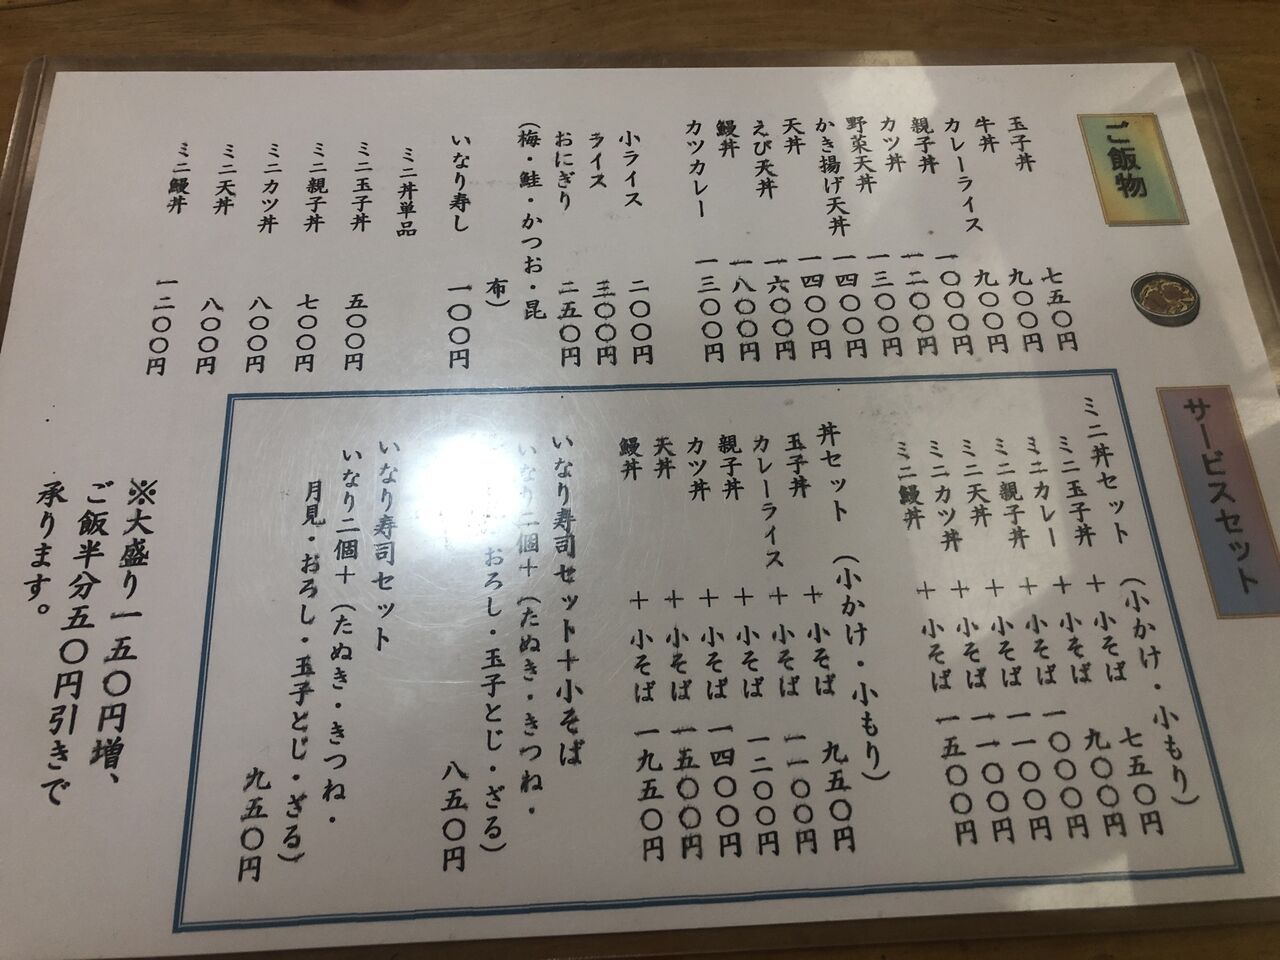 ご飯物
玉子丼 七五〇円
牛丼 九〇〇円
カレーライス 九〇〇円
親子丼 一〇〇〇円
カツ丼 一二〇〇円
野菜天丼 一三〇〇円
かき揚げ天丼 一四〇〇円
天丼 一四〇〇円
えび天丼 一六〇〇円
鰻丼 一八〇〇円
カツカレー 一三〇〇円
小ライス 二〇〇円
ライス 三〇〇円
おにぎり 二五〇円
(梅・鮭・かつお・昆
布)
いなり寿し 一〇〇円
ミニ丼単品
ミニ玉子丼 五〇〇円
ミニ親子丼 七〇〇円
ミニカツ丼 八〇〇円
ミニ天丼 八〇〇円
ミニ鰻丼 一二〇〇円
サービスセット
ミニ丼セット (小かけ・小もり)
ミニ玉子丼 + 小そば 七五〇円
ミニカレー + 小そば 九〇〇円
ミニ親子丼 + 小そば 一〇〇〇円
ミニ天丼 + 小そば 一一〇〇円
ミニカツ丼 + 小そば 一一〇〇円
ミニ鰻丼 + 小そば 一五〇〇円
丼セット (小かけ・小もり)
玉子丼 + 小そば 九五〇円
カレーライス + 小そば 一一〇〇円
親子丼 + 小そば 一二〇〇円
カツ丼 + 小そば 一四〇〇円
天丼 + 小そば 一五〇〇円
鰻丼 + 小そば 一九五〇円
いなり寿司セット+小そば
いなり二個+(たぬき・きつね・
おろし・玉子とじ・ざる)
八五〇円
いなり寿司セット
いなり二個+(たぬき・きつね・
月見・おろし・玉子とじ・ざる)
九五〇円
※大盛り一五〇円増、
ご飯半分五〇円引きで
承ります。